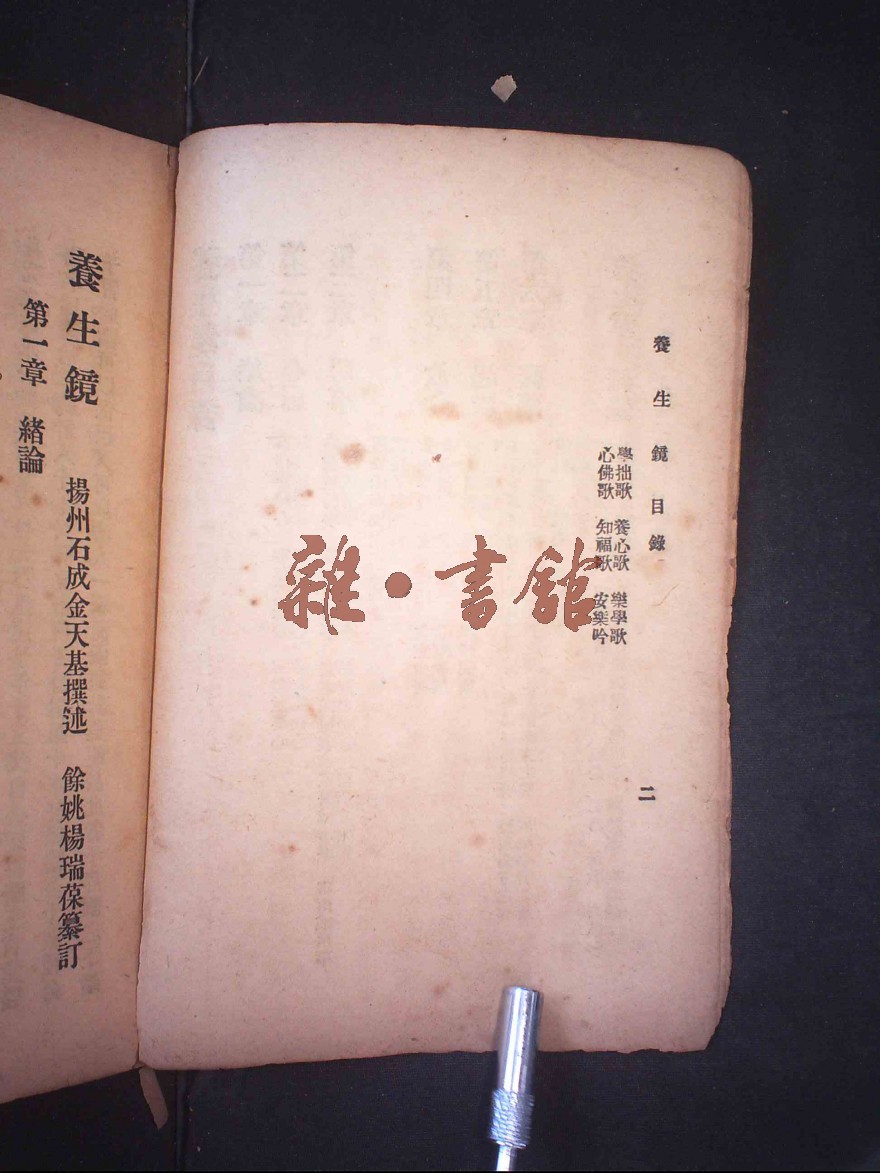 養生鏡目錄
學拙歌 養心歌 樂學歌
心佛歌 知福歌 安樂吟
二
雜·書館
養生鏡
揚州石成金天基撰述 餘姚楊瑞葆纂訂
第一章 緒論